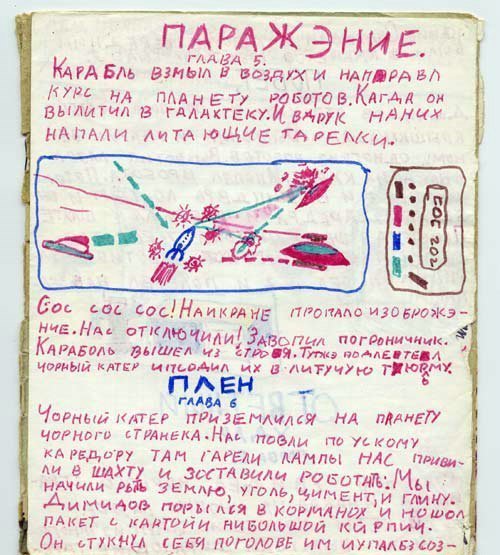 ПАРАЖЭНИЕ.
ГЛАВА 5.
КАРАБЛЬ ВЗМЫЛ В ВОЗДУХ И НАПРАВЛ
КУРС НА ПЛАНЕТУ РОБОТОВ. КАГДА ОН
ВЫЛИТИЛ В ГАЛАХТЕКУ. И ВДРУК НАНИХ
НАПАЛИ ЛИТАЮЩИЕ ТАРЕЛКИ.
СОС 202
СОС СОС СОС! НАИКРАНЕ ПРОПАЛО ИЗОБРОЖЭ-
НИЕ. НАС ОТКЛЮЧИЛИ! ЗАВОПИЛ ПОГРОНИЧНИК.
КАРАБОЛЬ ВЫШЕЛ ИЗ СТРОЯ. ТУТЖЭ ПОДЛЕТЕЛ
ЧОРНЫЙ КАТЕР ИПСОДИЛ ИХ В ЛИТУЧУЮ ТЮРМУ.
ПЛЕН
ГЛАВА 6
ЧОРНЫЙ КАТЕР ПРИЗЕМЛИЛСЯ НА ПЛАНЕТУ
ЧОРНОГО СТРАНЕКА. НАС ПОВЛИ ПО УСКОМУ
КАРЕДОРУ ТАМ ГАРЕЛИ ЛАМПЫ НАС ПРИВИ-
ЛИ В ШАХТУ И ЗОСТАВИЛИ РОБОТАТЬ. МЫ
НАЧИЛИ РЫТЬ ЗЕМЛЮ, УГОЛЬ, ЦИМЕНТ, И ГЛИНУ.
ДИМИДОВ ПОРЫЛСЯ В КОРМАНОХ И НОШОЛ
ПАКЕТ С КАРТОЙИ НИБОЛЬШОЙ КИРПИЧ.
ОН СТУКНУЛ СЕБЯ ПОГОЛОВЕ ИМ ИУПАЛ БЭСОЗ-